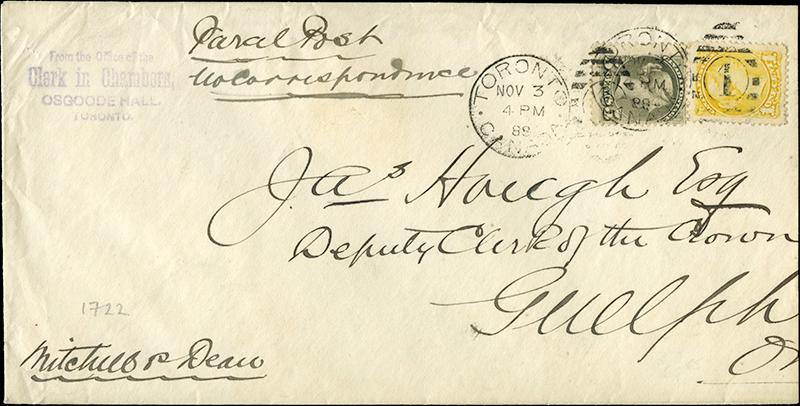 From the Office of the
Clerk in Chambers,
OSGOODE HALL,
TORONTO.
Parcel Post
No Correspondence
TORONTO
NOV 3
4 PM
88
CANADA
Jas Hough Esq
Deputy Clerk of the Crown
Guelph
On
1722
Mitchell vs Dean